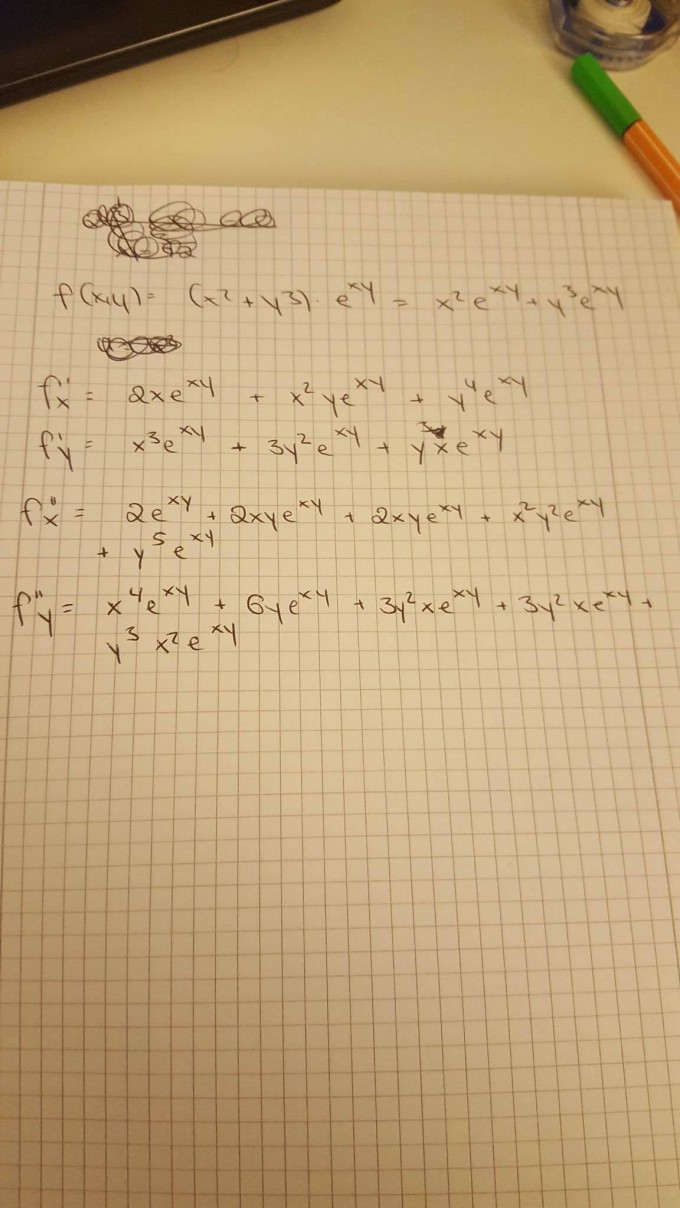 f(x,y) = (x² + y³) · e^xy = x²e^xy + y³e^xy
f'x = 2xe^xy + x²ye^xy + y⁴e^xy
f'y = x³e^xy + 3y²e^xy + y³xe^xy
f"x = 2e^xy + 2xye^xy + 2xye^xy + x²y²e^xy
+ y⁵e^xy
f"y = x⁴e^xy + 6ye^xy + 3y²xe^xy + 3y²xe^xy +
y³x²e^xy